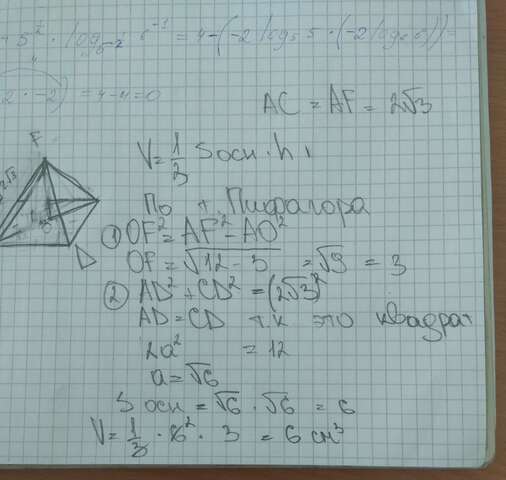 5² · log₅⁻² 6⁻¹ = 4-(-2 log₅ 5 · (-2 log₆ 6)) =
2 · -2) = 4-4=0
AC = AF = 2√3
F
V = 1/3 Sосн · h
2√3
По т. Пифагора
① OF² = AF² - AO²
D
OF = √12 - 3 = √9 = 3
② AD² + CD² = (2√3)²
AD = CD т.к это квадрат
2a² = 12
a = √6
S осн = √6 · √6 = 6
V = 1/3 · 6² · 3 = 6 см³